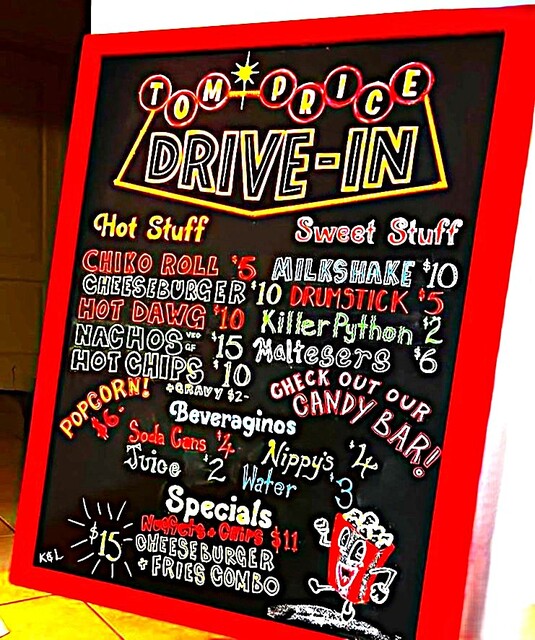 TOM PRICE
DRIVE-IN
Hot Stuff
CHIKO ROLL $5
CHEESEBURGER $10
HOT DAWG $10
NACHOS VEG GF $15
HOT CHIPS $10
+GRAVY $2-
POPCORN!
$6-
Sweet Stuff
MILKSHAKE $10
DRUMSTICK $5
Killer Python $2
Maltesers $6
CHECK OUT OUR
CANDY BAR!
Beveraginos
Soda Cans $4
Juice $2
Nippy's $4
Water $3
Specials
Nuggets + Chips $11
$15 CHEESEBURGER
+ FRIES COMBO
K&L